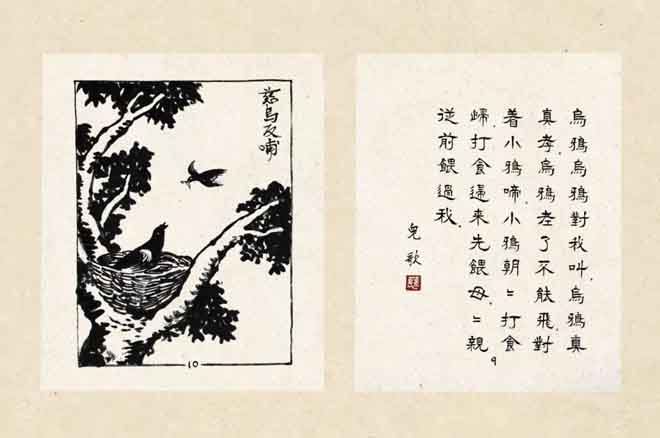 慈烏反哺
10
烏鴉烏鴉對我叫烏鴉真
真孝烏鴉老了不能飛對
着小鴉啼小鴉朝〻打食
歸打食還來先餵母〻親
從前餵過我
兒歌
9